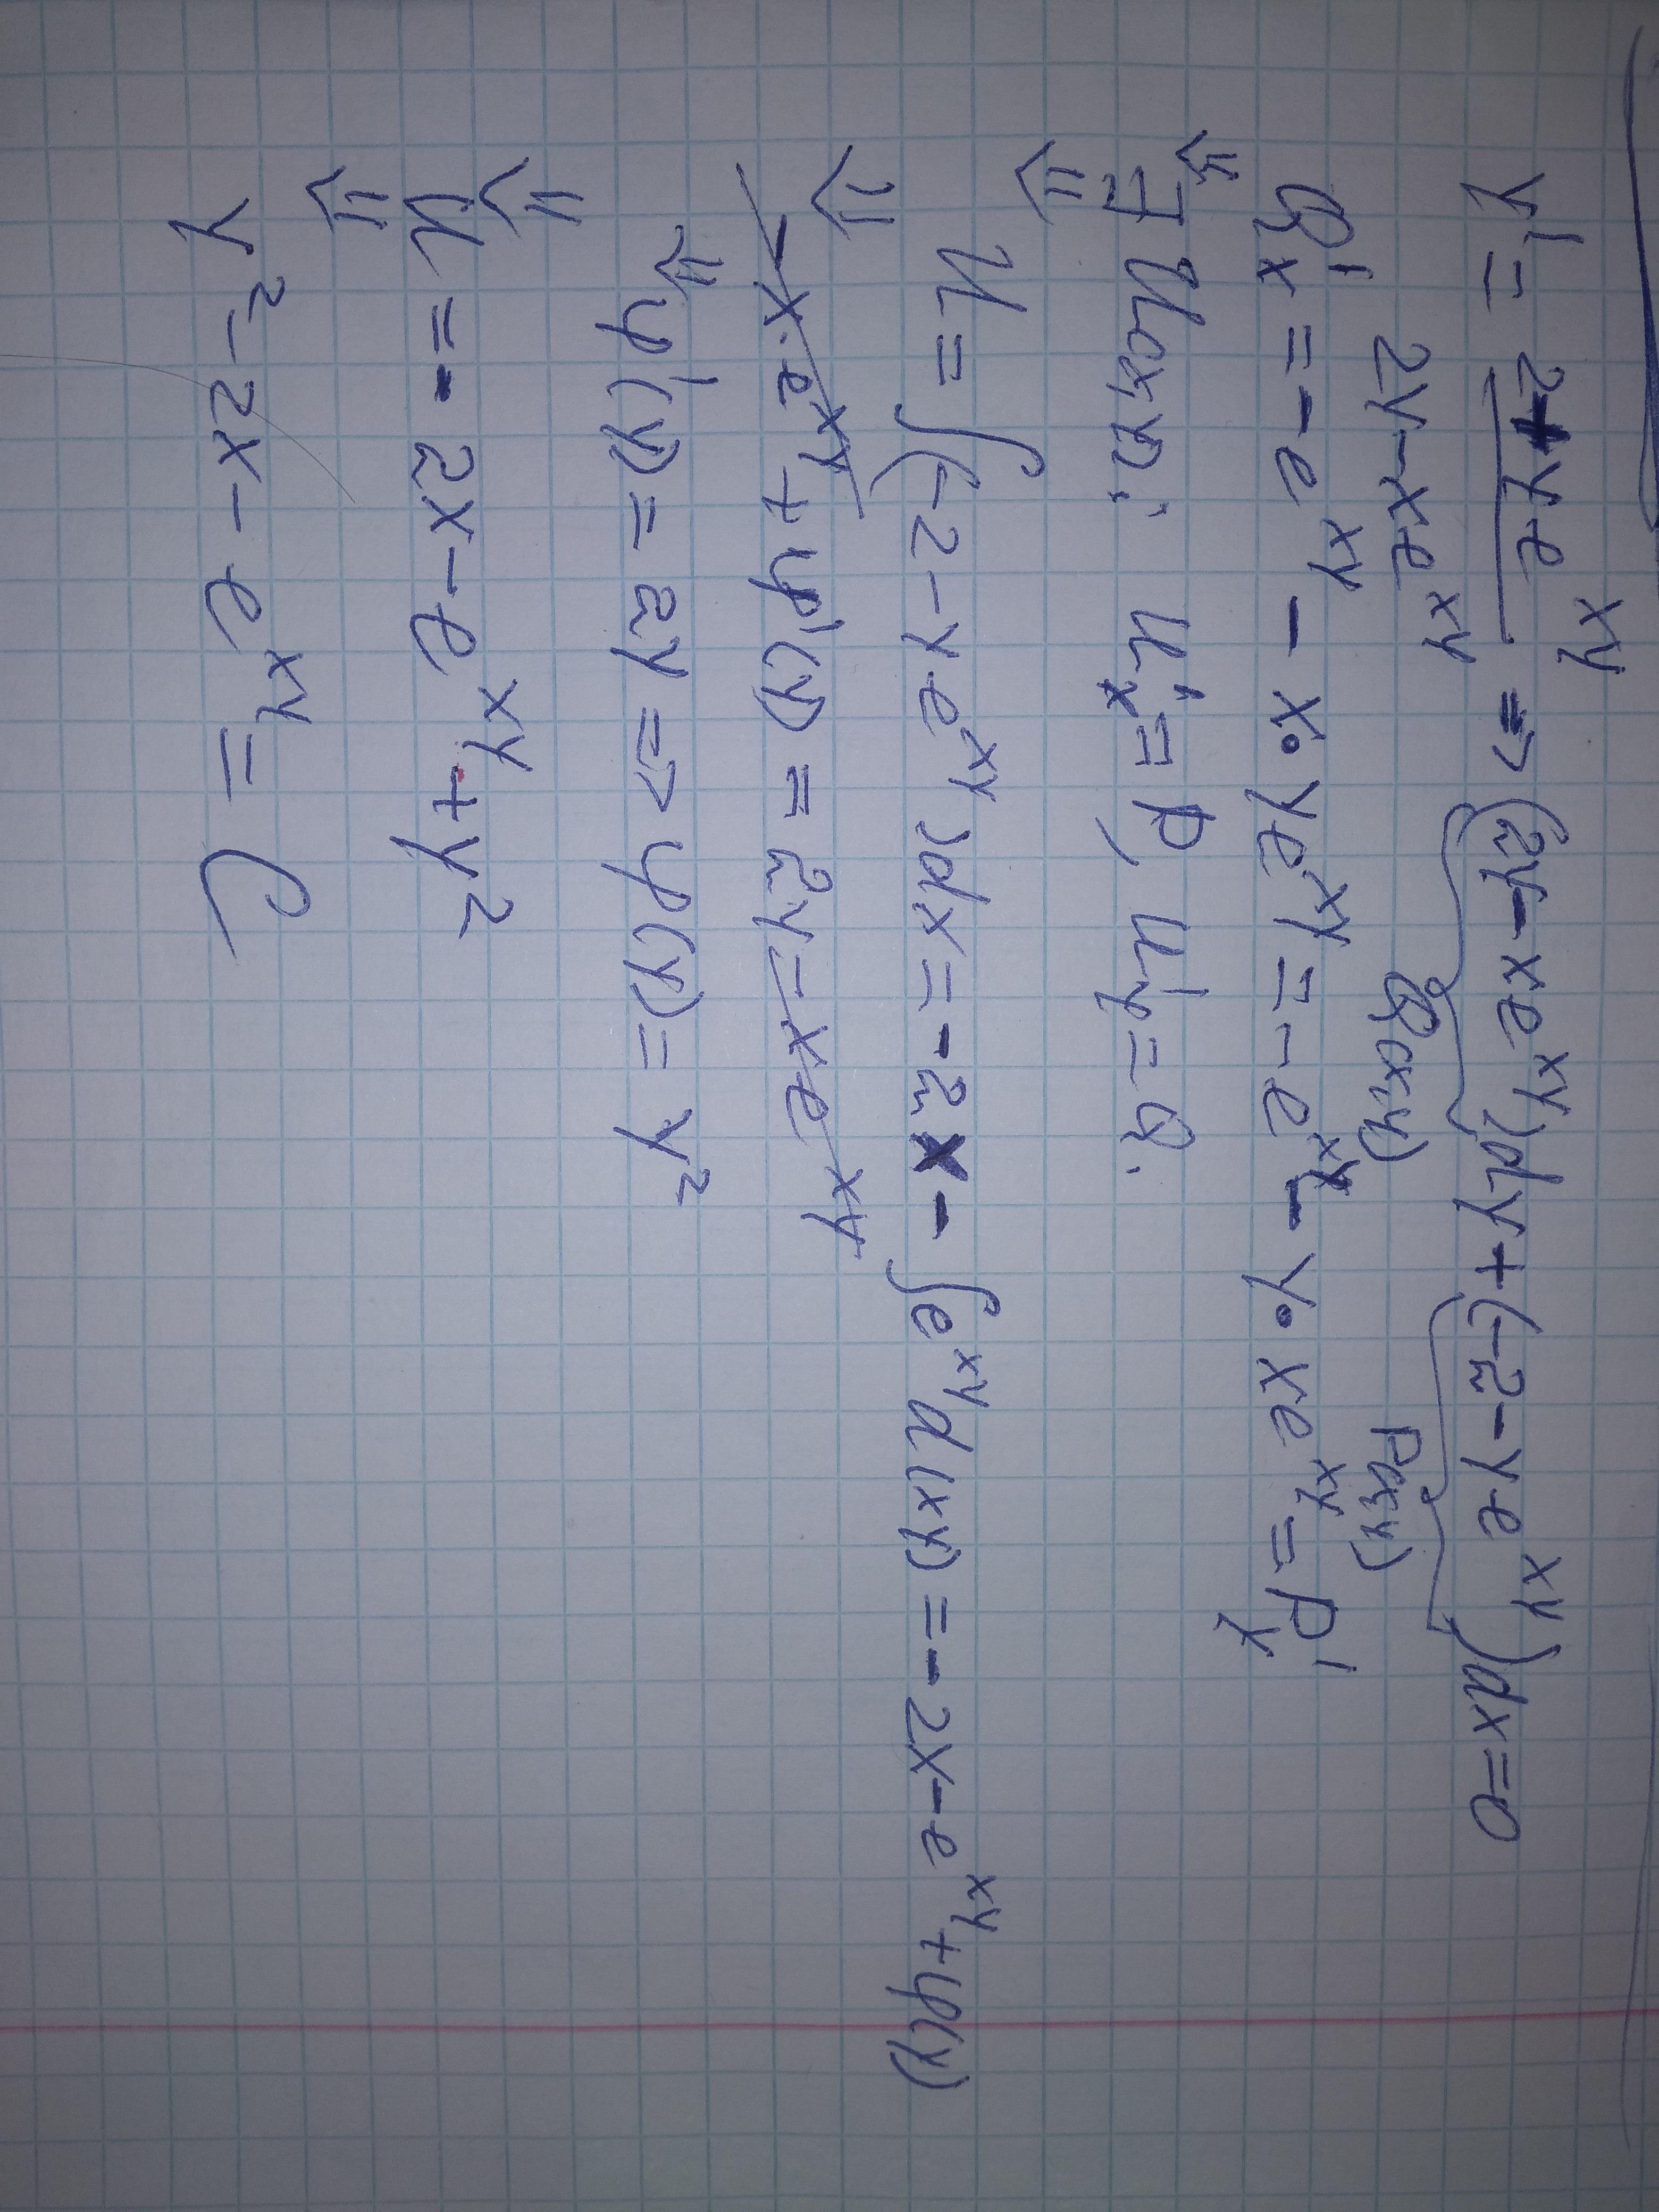 y' = (2+y·e^{xy})/(2y-x·e^{xy}) => (2y-xe^{xy})dy+(-2-y·e^{xy})dx=0
Q(x,y) P(x,y)
Q'x = -e^{xy} - x·ye^{xy} = -e^{xy} - y·xe^{xy} = P'y
⇓
∃ U(x,y): U'x = P, U'y = Q.
⇓
U = ∫(-2-y·e^{xy})dx = -2x - ∫e^{xy}d(xy) = -2x-e^{xy}+φ(y)
⇓
-x·e^{xy} + φ'(y) = 2y - x·e^{xy}
⇓ φ'(y) = 2y => φ(y) = y²
⇓
U = -2x-e^{xy}+y²
⇓
y²-2x-e^{xy} = C